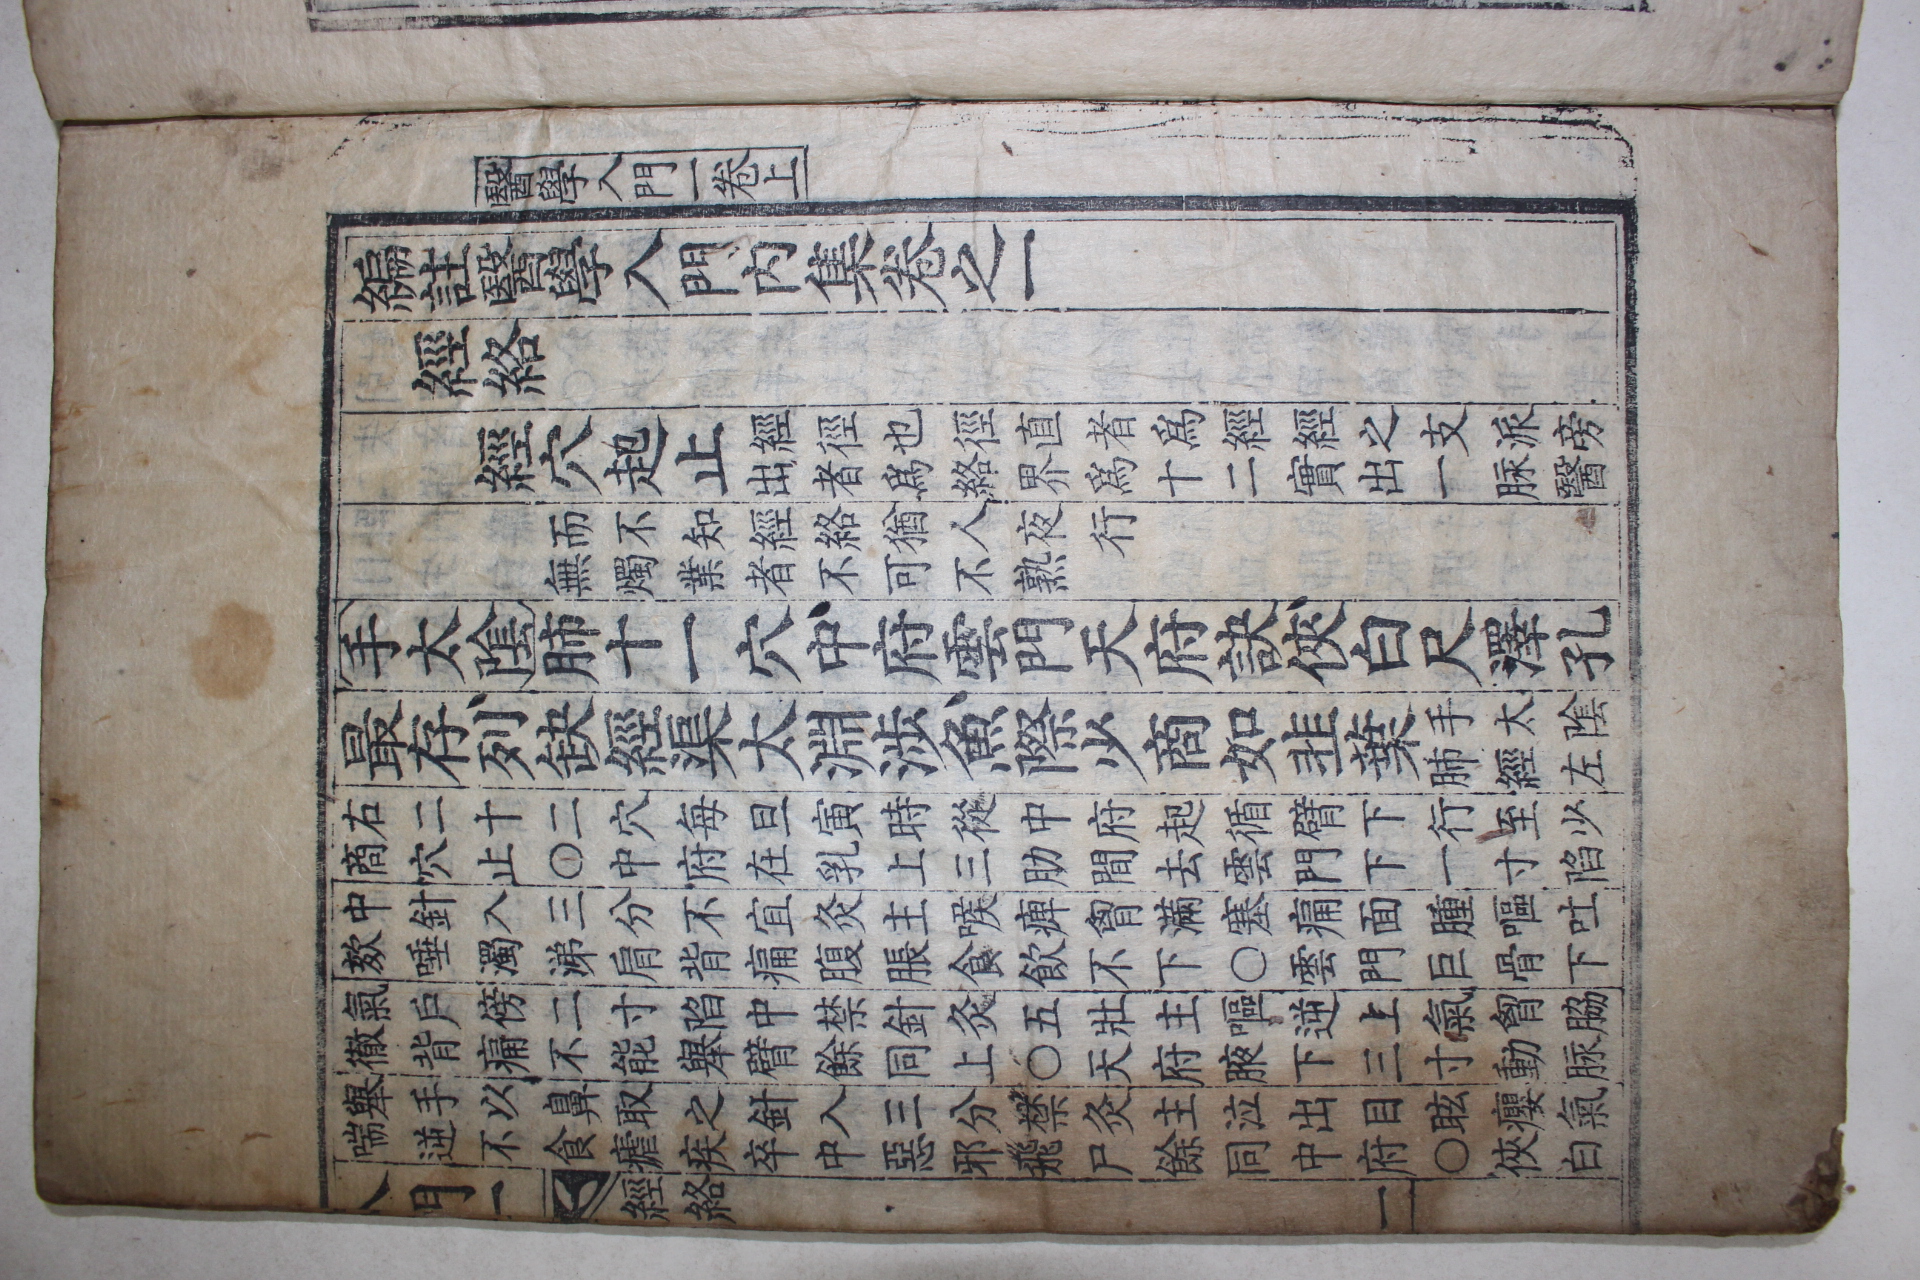 醫學入門一卷上
編註醫學入門內集卷之一
經絡
經穴起止
經徑也徑直者爲經經之支派旁
出者爲絡界爲十二實出一脉醫
而不知經絡猶人夜行
無燭業者不可不熟
手太陰肺十一穴中府雲門天府訣俠白尺澤孔
最存列缺經渠太淵涉魚際少商如韭葉
手太陰
肺經左
右二十二穴每旦寅時從中府起循臂下行至少
商穴止〇中府在乳上三肋間去雲門下一寸陷
中針入三分不宜灸主喉痺胷滿塞痛面腫嘔吐
欬唾濁涕肩背痛腹脹食飲不下〇雲門巨骨下
氣戶傍二寸陷中禁針灸五壯主嘔逆上氣胷脇
徹背痛不能舉臂餘同上〇天府腋下三寸動脉
舉手以鼻取之針入三分禁灸主泣出目眩癭氣
喘逆不食瘧疾卒中惡邪飛尸餘同中府〇俠白
入門一 經絡 二